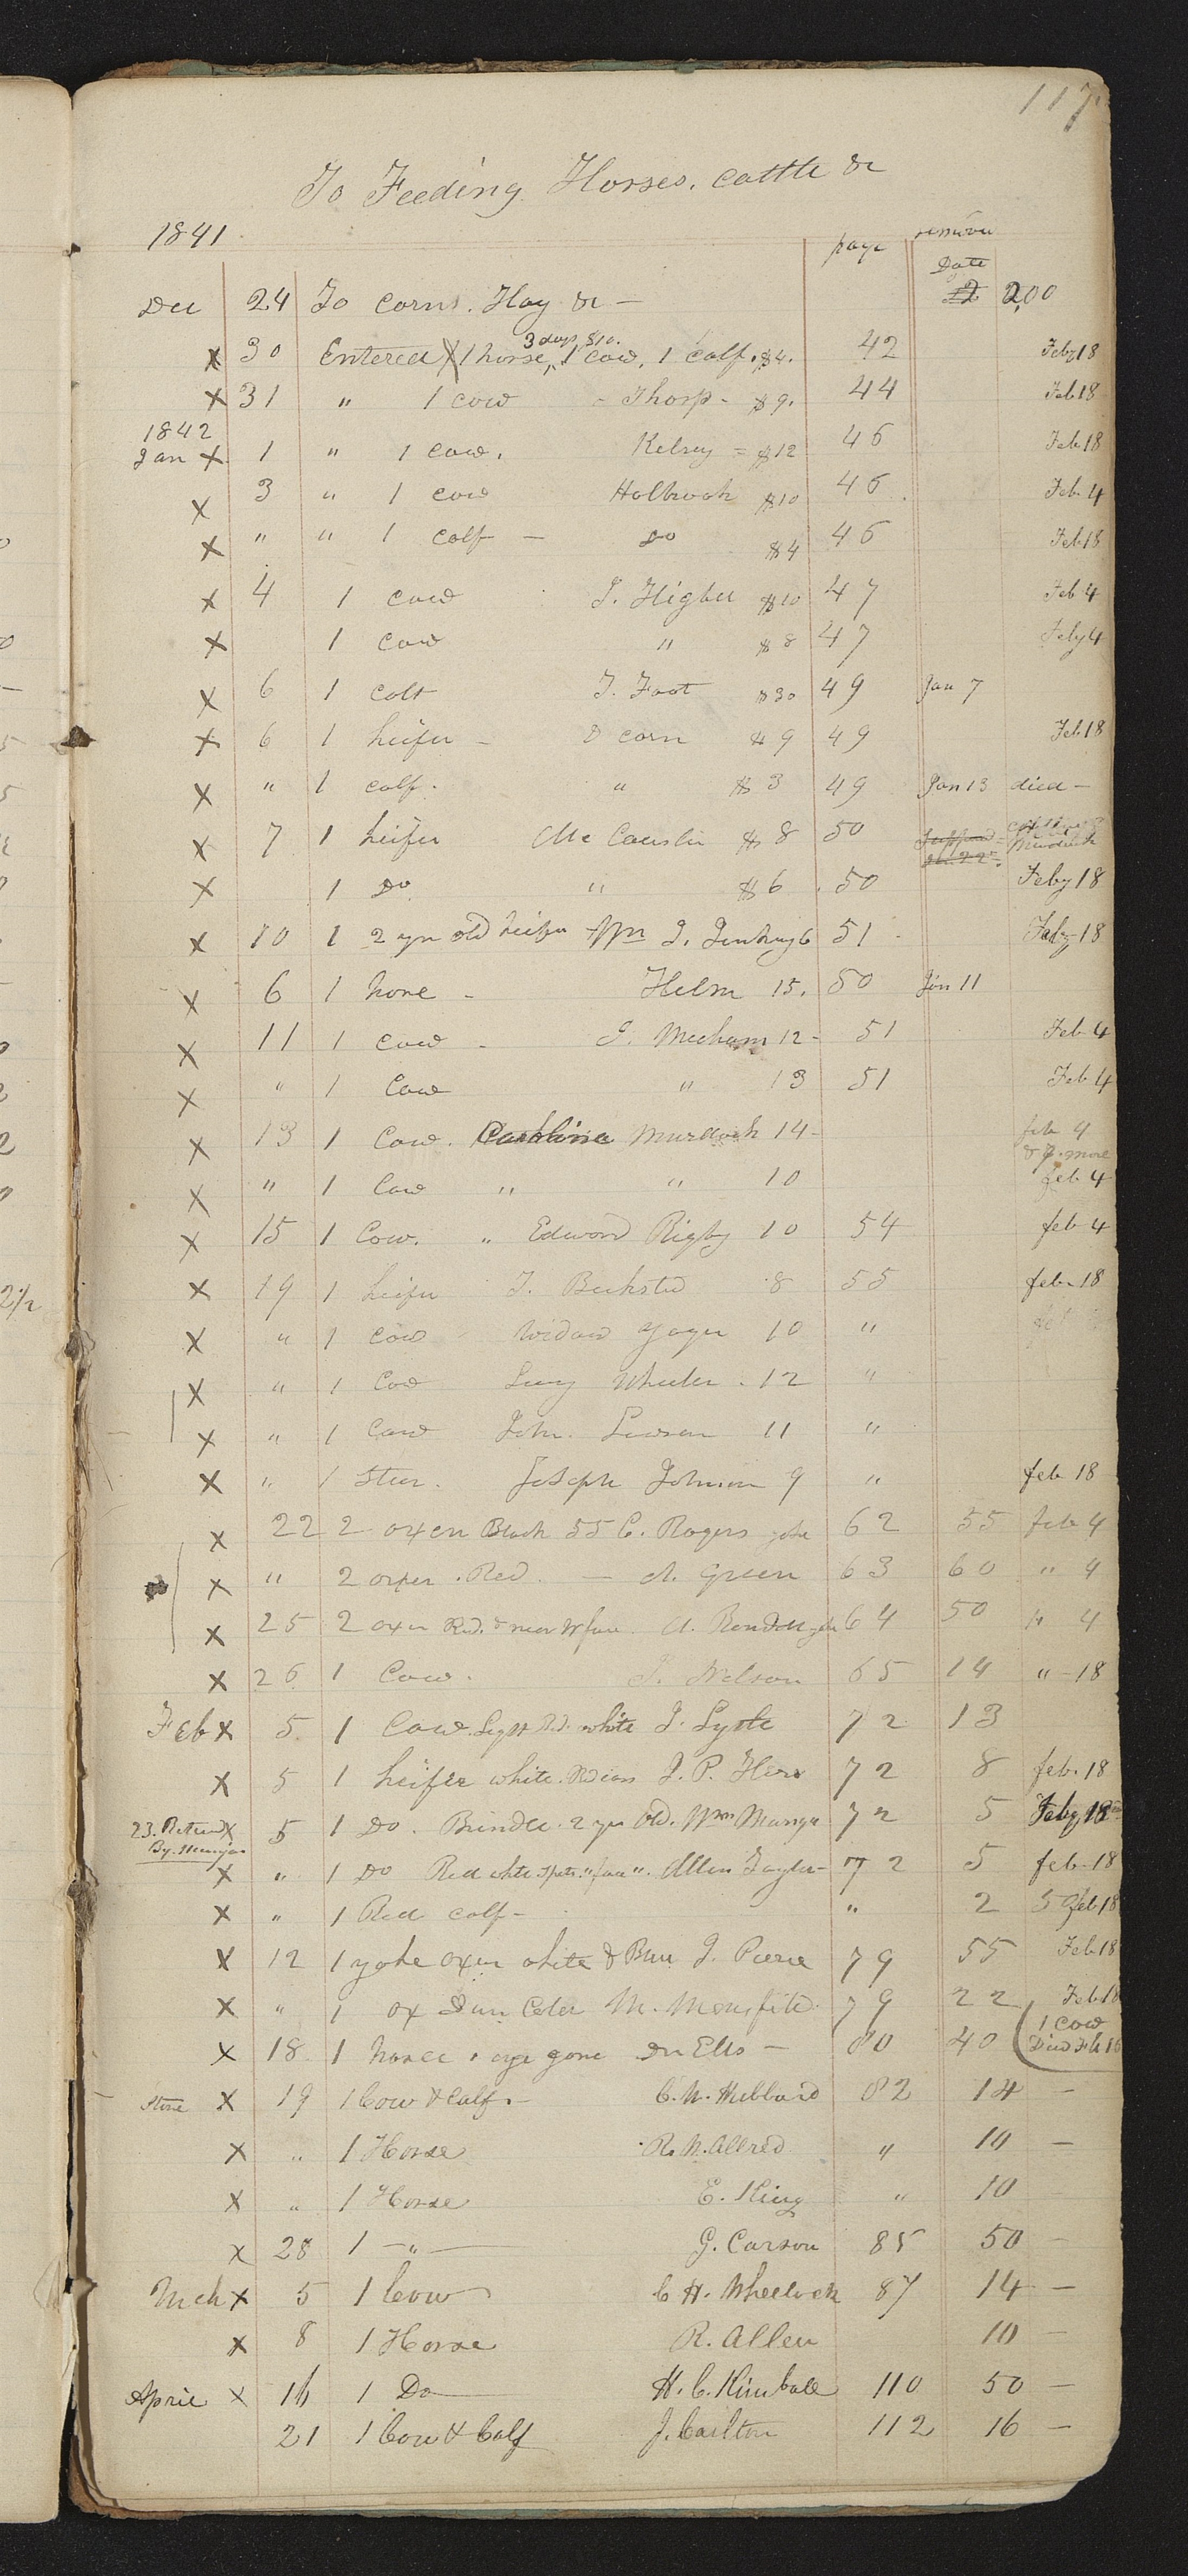 117
To Feeding Horses, cattle &c
1841
page
Date
Dec 24 To corns. Hay &c — 12 2,00
3 days, $10.
X 30 Entered X 1 horse, 1 cow, 1 calf. $4. 42 Feby 18
X 31 " 1 cow - Thorp - $9. 44 Feb 18
1842
Jan X 1 " 1 cow. Kelsey = $12 46 Feb 18
X 3 " 1 cow Holbrook $10 46 Feb 4
X " " 1 calf — do $4 46 Feb 18
X 4 1 cow J. Higbee $10 47 Feb 4
X 1 cow " $8 47 Feby 4
X 6 1 colt T. Foot $30 49 Jan 7
X 6 1 heifer - & corn $9 49 Feb 18
X " 1 calf. " $3 49 Jan 13 died —
X 7 1 heifer Mc Causlin $8 50 Murdock
X 1 Do. " $6 50 Feby 18
X 10 1 2 yr old heifer Wm J. 6 51 Feby 18
X 6 1 horse - Helm 15. 50 Jan 11
X 11 1 cow - Mecham 12 - 51 Feb 4
X " 1 Cow " 13 51 Feb 4
X 13 1 Cow. Murdock 14 - feb 4
& J. more
X " 1 Cow " " 10 feb 4
X 15 1 Cow. " Edword Rigby 10 54 feb 4
X 19 1 heifer T. Beksted 8 55 feb. 18
X " 1 cow Widow Yager 10 "
X " 1 Cow Lucy Wheeler. 12 "
X " 1 Cow John. 11 "
X " 1 Steer. Joseph Johnson 9 " feb 18
X 22 2 oxen Black 55 C. Rogers yoke 62 55 feb 4
X " 2 oxen. Red. — Green 63 60 " 4
X 25 2 oxen Red. & 64 50 " 4
X 26 1 Cow. Nelson 65 14 " -18
Feb X 5 1 Cow Light Rd. white J. Lytle 72 13
X 5 1 heifer white. J. P. Herr 72 8 feb. 18
23. Return X 5 1 Do. Brindle. 2 yr old. Wm 72 5 Feby 18
By.
X " 1 Do Red white spots. "face". Allen Taylor - 72 5 feb-18
X " 1 Red calf - " 2 feb 18
X 12 1 yoke oxen white & J. Pierce 79 55 Feb 18
X " 1 ox Dun Coler M. 79 22 Feb 18
1 Cow
X 18. 1 horse 1 eye gone Dr Ells — 80 40 Died Feb 16
Store X 19 1 Cow & Calf. - C. W. Hubbard 82 14 —
X " 1 Horse R. N. Allred " 10 —
X " 1 Horse E. King " 10 —
X 28 1 —"— G. Carson 85 50 —
Mch X 5 1 Cow C H. Wheelock 87 14 —
X 8 1 Horse R. Allen 10 —
April X 16 1 Do H. C. Kimball 110 50 —
21 1 Cow & Calf J. Carlton 112 16 —